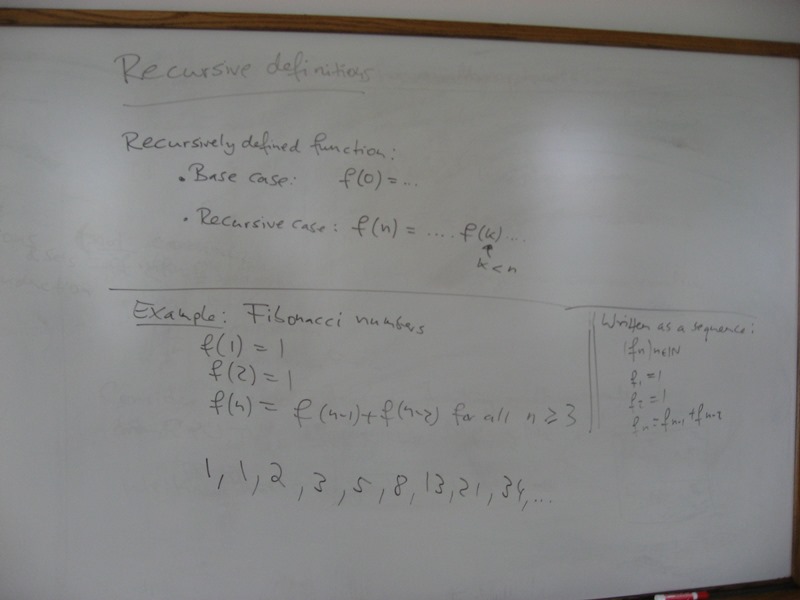 Recursive definitions
Recursively defined function:
• Base case: f(0) = ...
• Recursive case: f(n) = .... f(k) ...
k < n
Example: Fibonacci numbers
f(1) = 1
f(2) = 1
f(n) = f(n-1) + f(n-2) for all n ≥ 3
1, 1, 2, 3, 5, 8, 13, 21, 34, ...
Written as a sequence:
(fn)n∈ℕ
f₁ = 1
f₂ = 1
fn = fn-1 + fn-2